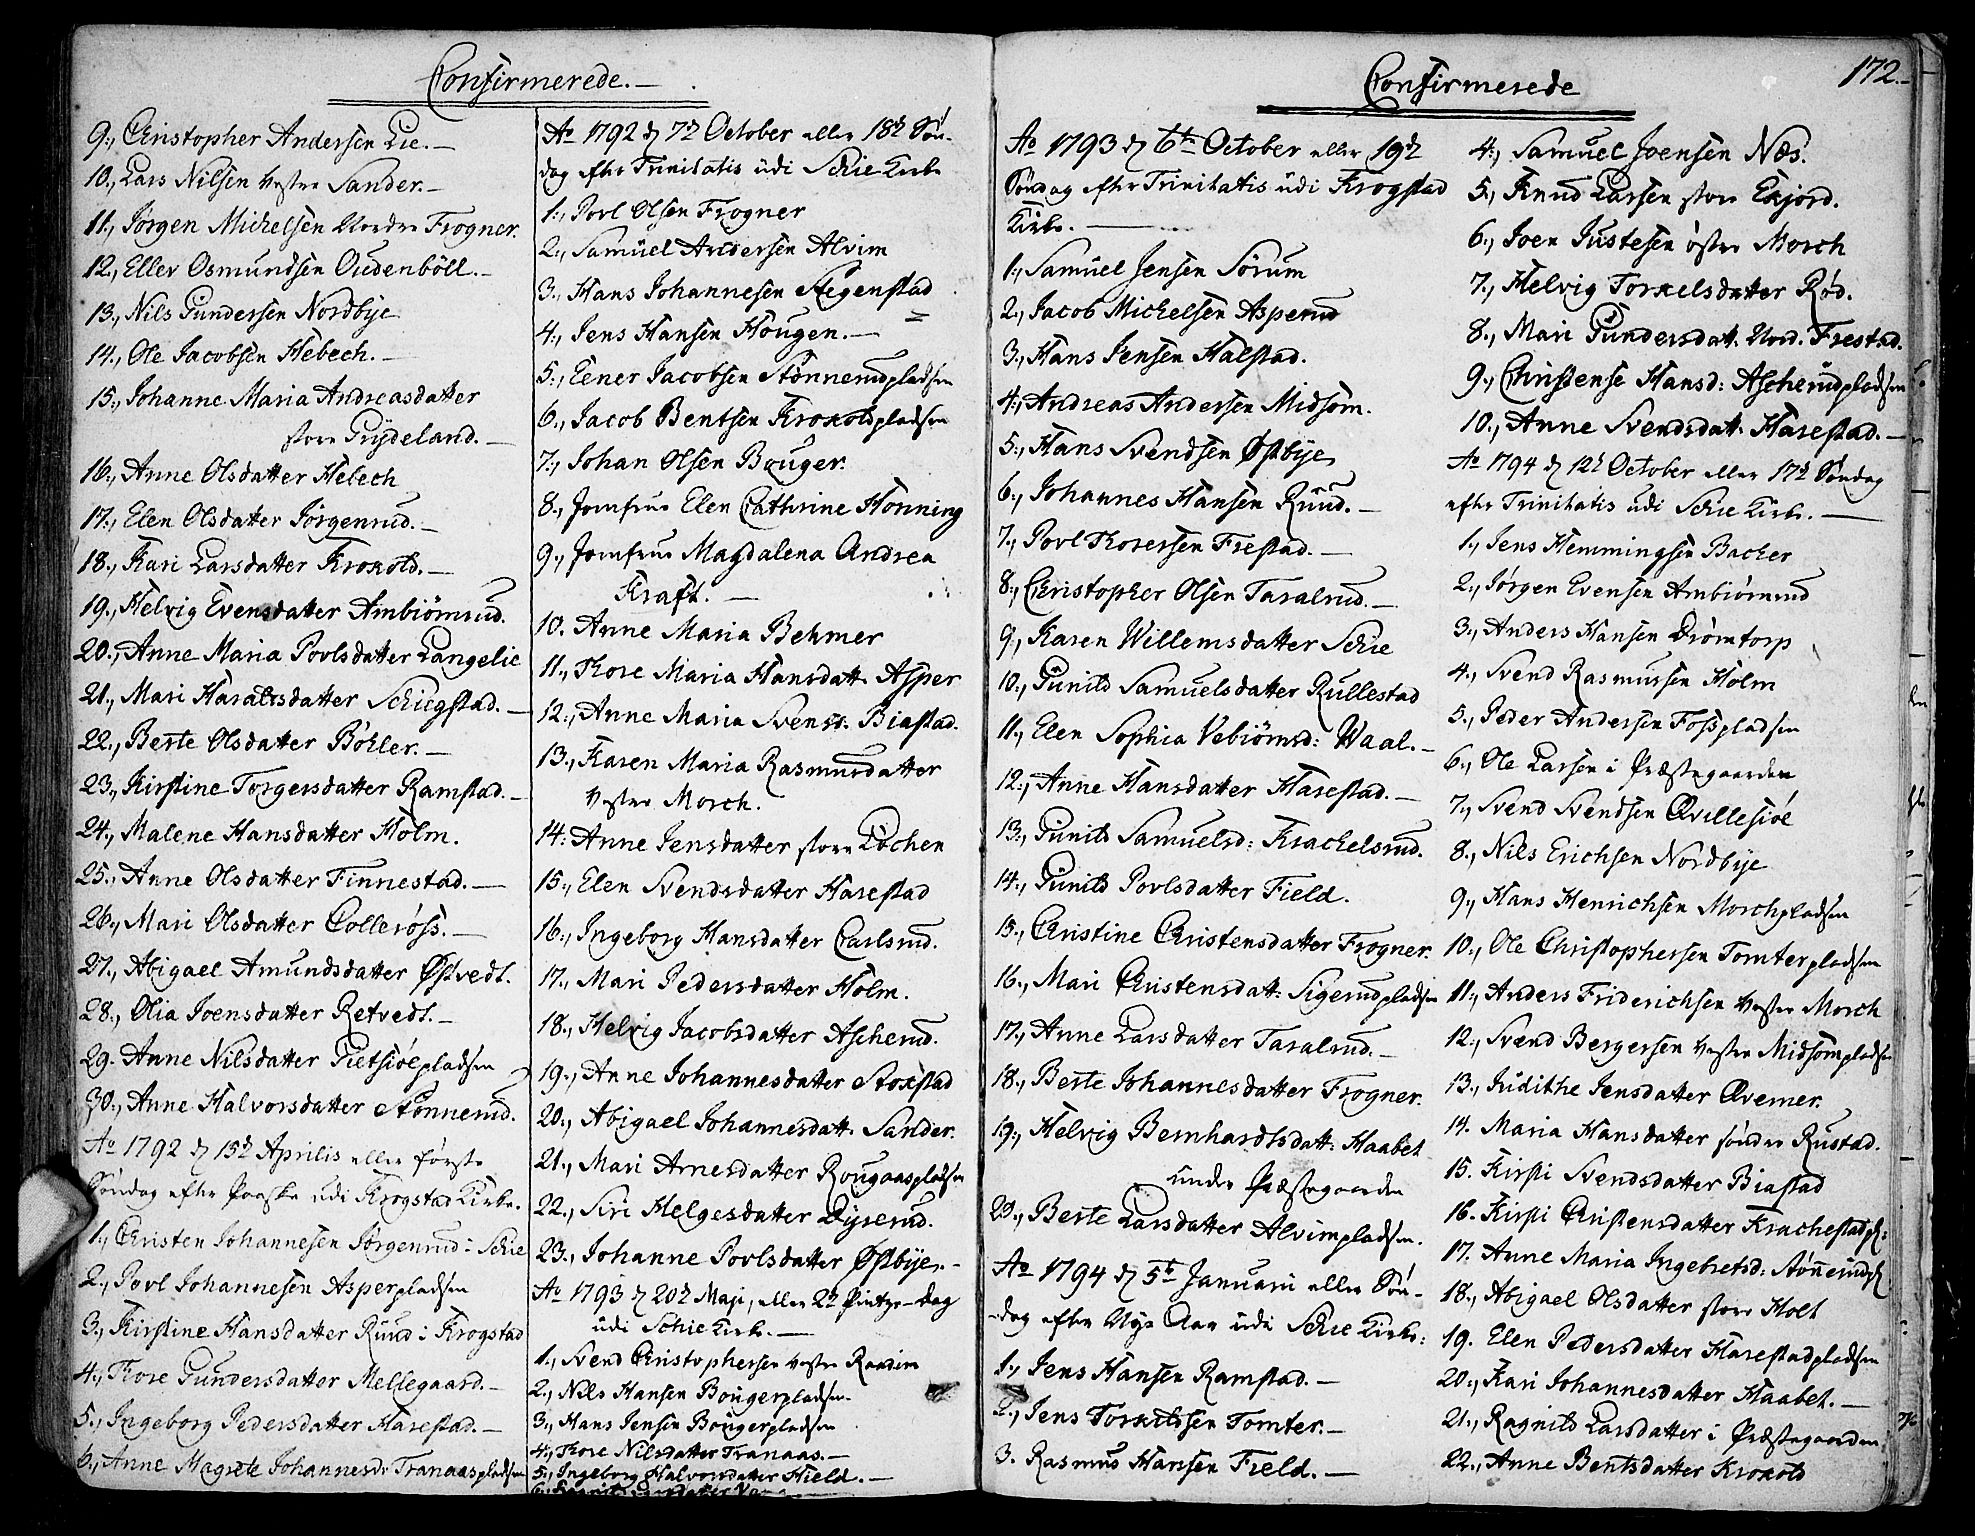 Confirmerede.
9., Christopher Andersen Lie.
10., Lars Nilsen Vestre Sander.
11., Jørgen Michelsen Nordre Frogner.
12., Ellev Osmundsen Oudenböll.
13., Nils Gundersen Nordbÿe
14., Ole Jacobsen Hebech.
15., Johanne Maria Andreasdatter
store Grÿdeland.
16., Anne Olsdatter Hebech
17., Elen Olsdatter Jörgenrud.
18., Kari Larsdatter Kroxold.
19., Helvig Evensdatter Ambiörnrud.
20., Anne Maria Povlsdatter Langelie
21., Mari Haraldsdatter Schiegstad.
22., Berte Olsdatter Böhler.
23., Kirstine Torgersdatter Ramstad.
24., Malene Hansdatter Holm.
25., Anne Olsdatter Finnestad.
26., Mari Olsdatter Colleröss.
27., Abigael Amundsdatter Østvedt.
28., Olia Joensdatter Retvedt.
29. Anne Nilsdatter Gietsiöepladsen
30., Anne Halvorsdatter Stönnerud.
Ao 1792 d 15de Aprilis eller förste
Söndag efter Paaske udi Krogstad Kirke.
1., Christen Johannesen Jörgenrud i Schie
2., Povl Johannesen Asperpladsen
3., Kirstine Hansdatter Ruud i Krogstad
4., Thore Gundersdatter Mellegaard.
5., Ingeborg Pedersdatter Harestad.
6., Anne Magrete Johannesdr Tranaaspladsen
Ao 1792 d 7de October eller 18de Søn-
dag efter Trinitatis udi Schie Kirke
1., Povl Olsen Frogner
2., Samuel Andersen Alvim
3., Hans Johannesen Stegenstad
4., Jens Hansen Hougen.
5., Eener Jacobsen Stönnerudpladsen
6., Jacob Bentsen Kroxoldpladsen
7., Johan Olsen Bouger.
8., Jomfrue Elen Cathrine Honning
9., Jomfrue Magdalena Andrea
Kraft.
10. Anne Maria Behmer
11., Thore Maria Hansdatt. Asper
12., Anne Maria Svensd: Biastad.
13., Karen Maria Rasmusdatter
Vestre Morch.
14. Anne Jensdatter store Löchen
15., Elen Svendsdatter Harestad
16., Ingeborg Hansdatter Carlsrud.
17., Mari Pedersdatter Holm.
18., Helvig Jacobsdatter Ascherud.
19., Anne Johannesdatter Stoxstad
20., Abigael Johannesdatt. Sander.
21., Mari Arnesdatter Rougaaspladsen
22., Siri Helgesdatter Dÿrerud.
23., Johanne Povlsdatter Østbÿe.
Ao 1793 d 20de Maji, eller 2de Pintze-dag
udi Schie Kirke.
1., Svend Christophersen Vestre Raadim
2., Nils Hansen Bougerpladsen
3., Hans Jensen Bougerpladsen
4., Thore Nilsdatter Tranaas.
5., Ingeborg Halvorsdatter Hield.
Confirmerede
172.
Ao 1793 d 6te October eller 19de
Søndag efter Trinitatis udi Krogstad
Kirke.
1., Samuel Jensen Sörum
2., Jacob Michelsen Asperud
3., Hans Jensen Halstad.
4., Andreas Andersen Midsom.
5., Hans Svendsen Østbÿe
6., Johannes Hansen Ruud.
7., Povl Thoresen Frestad.
8., Christopher Olsen Taralrud.
9., Karen Willemsdatter Schie
10., Gunild Samuelsdatter Rullestad
11., Elen Sophia Vebiörnsd: Waal.
12., Anne Hansdatter Harestad.
13., Gunild Samuelsd: Krachelsrud.
14., Gunild Povlsdatter Field.
15., Christine Christensdatter Frogner.
16., Mari Christensdatt: Sigerudpladsen
17., Anne Larsdatter Taralrud.
18., Berte Johannesdatter Frogner.
19., Helvig Bernhardtsdatt: Haabet
under Præstegaarden
20., Berte Larsdatter Alvimpladsen.
Ao 1794 d 5te Januarii eller Søn-
-dag efter Nye Aar udi Schie Kirke:
1., Jens Hansen Ramstad.
2., Jens Torkildsen Tomter.
3. Rasmus Hansen Field.
4., Samuel Joensen Næs.
5., Knud Larsen store Exjord.
6., Joen Justesen östre Morch
7., Helvig Torkelsdatter Rød.
8., Mari Gundersdatt. Nord. Frestad.
9., Christense Hansd: Ascherudpladsen
10., Anne Svendsdatt. Harestad.
Ao 1794 d 12te October eller 17de Söndag
efter Trinitatis udi Schie Kirke.
1., Jens Hemmingsen Bacher
2., Jörgen Evensen Ambiörnrud
3., Anders Hansen Drömtorp
4., Svend Rasmussen Holm
5., Peder Andersen Fosspladsen
6., Ole Larsen i Præstegaarden
7., Svend Svendsen Qvillesiöe
8., Nils Erichsen Nordbÿe
9., Hans Henrichsen Morchpladsen
10., Ole Christophersen Tomterpladsen
11., Anders Friderichsen Vestre Morch
12., Svend Bergersen Vestre Midsompladsen
13., Judithe Jensdatter Qverner.
14. Maria Hansdatter söndre Rustad.
15. Kirsti Svendsdatter Biastad
16. Kirsti Christensdatter Krachestadpl:
17. Anne Maria Ingebretsd: Stönnerudpl
18., Abigael Olsdatter store Holt
19. Elen Pedersdatter Harestadpladsen
20., Kari Johannesdatter Haabet.
21., Ragnild Larsdatter i Præstegaarden
22., Anne Bentsdatter Kroxold